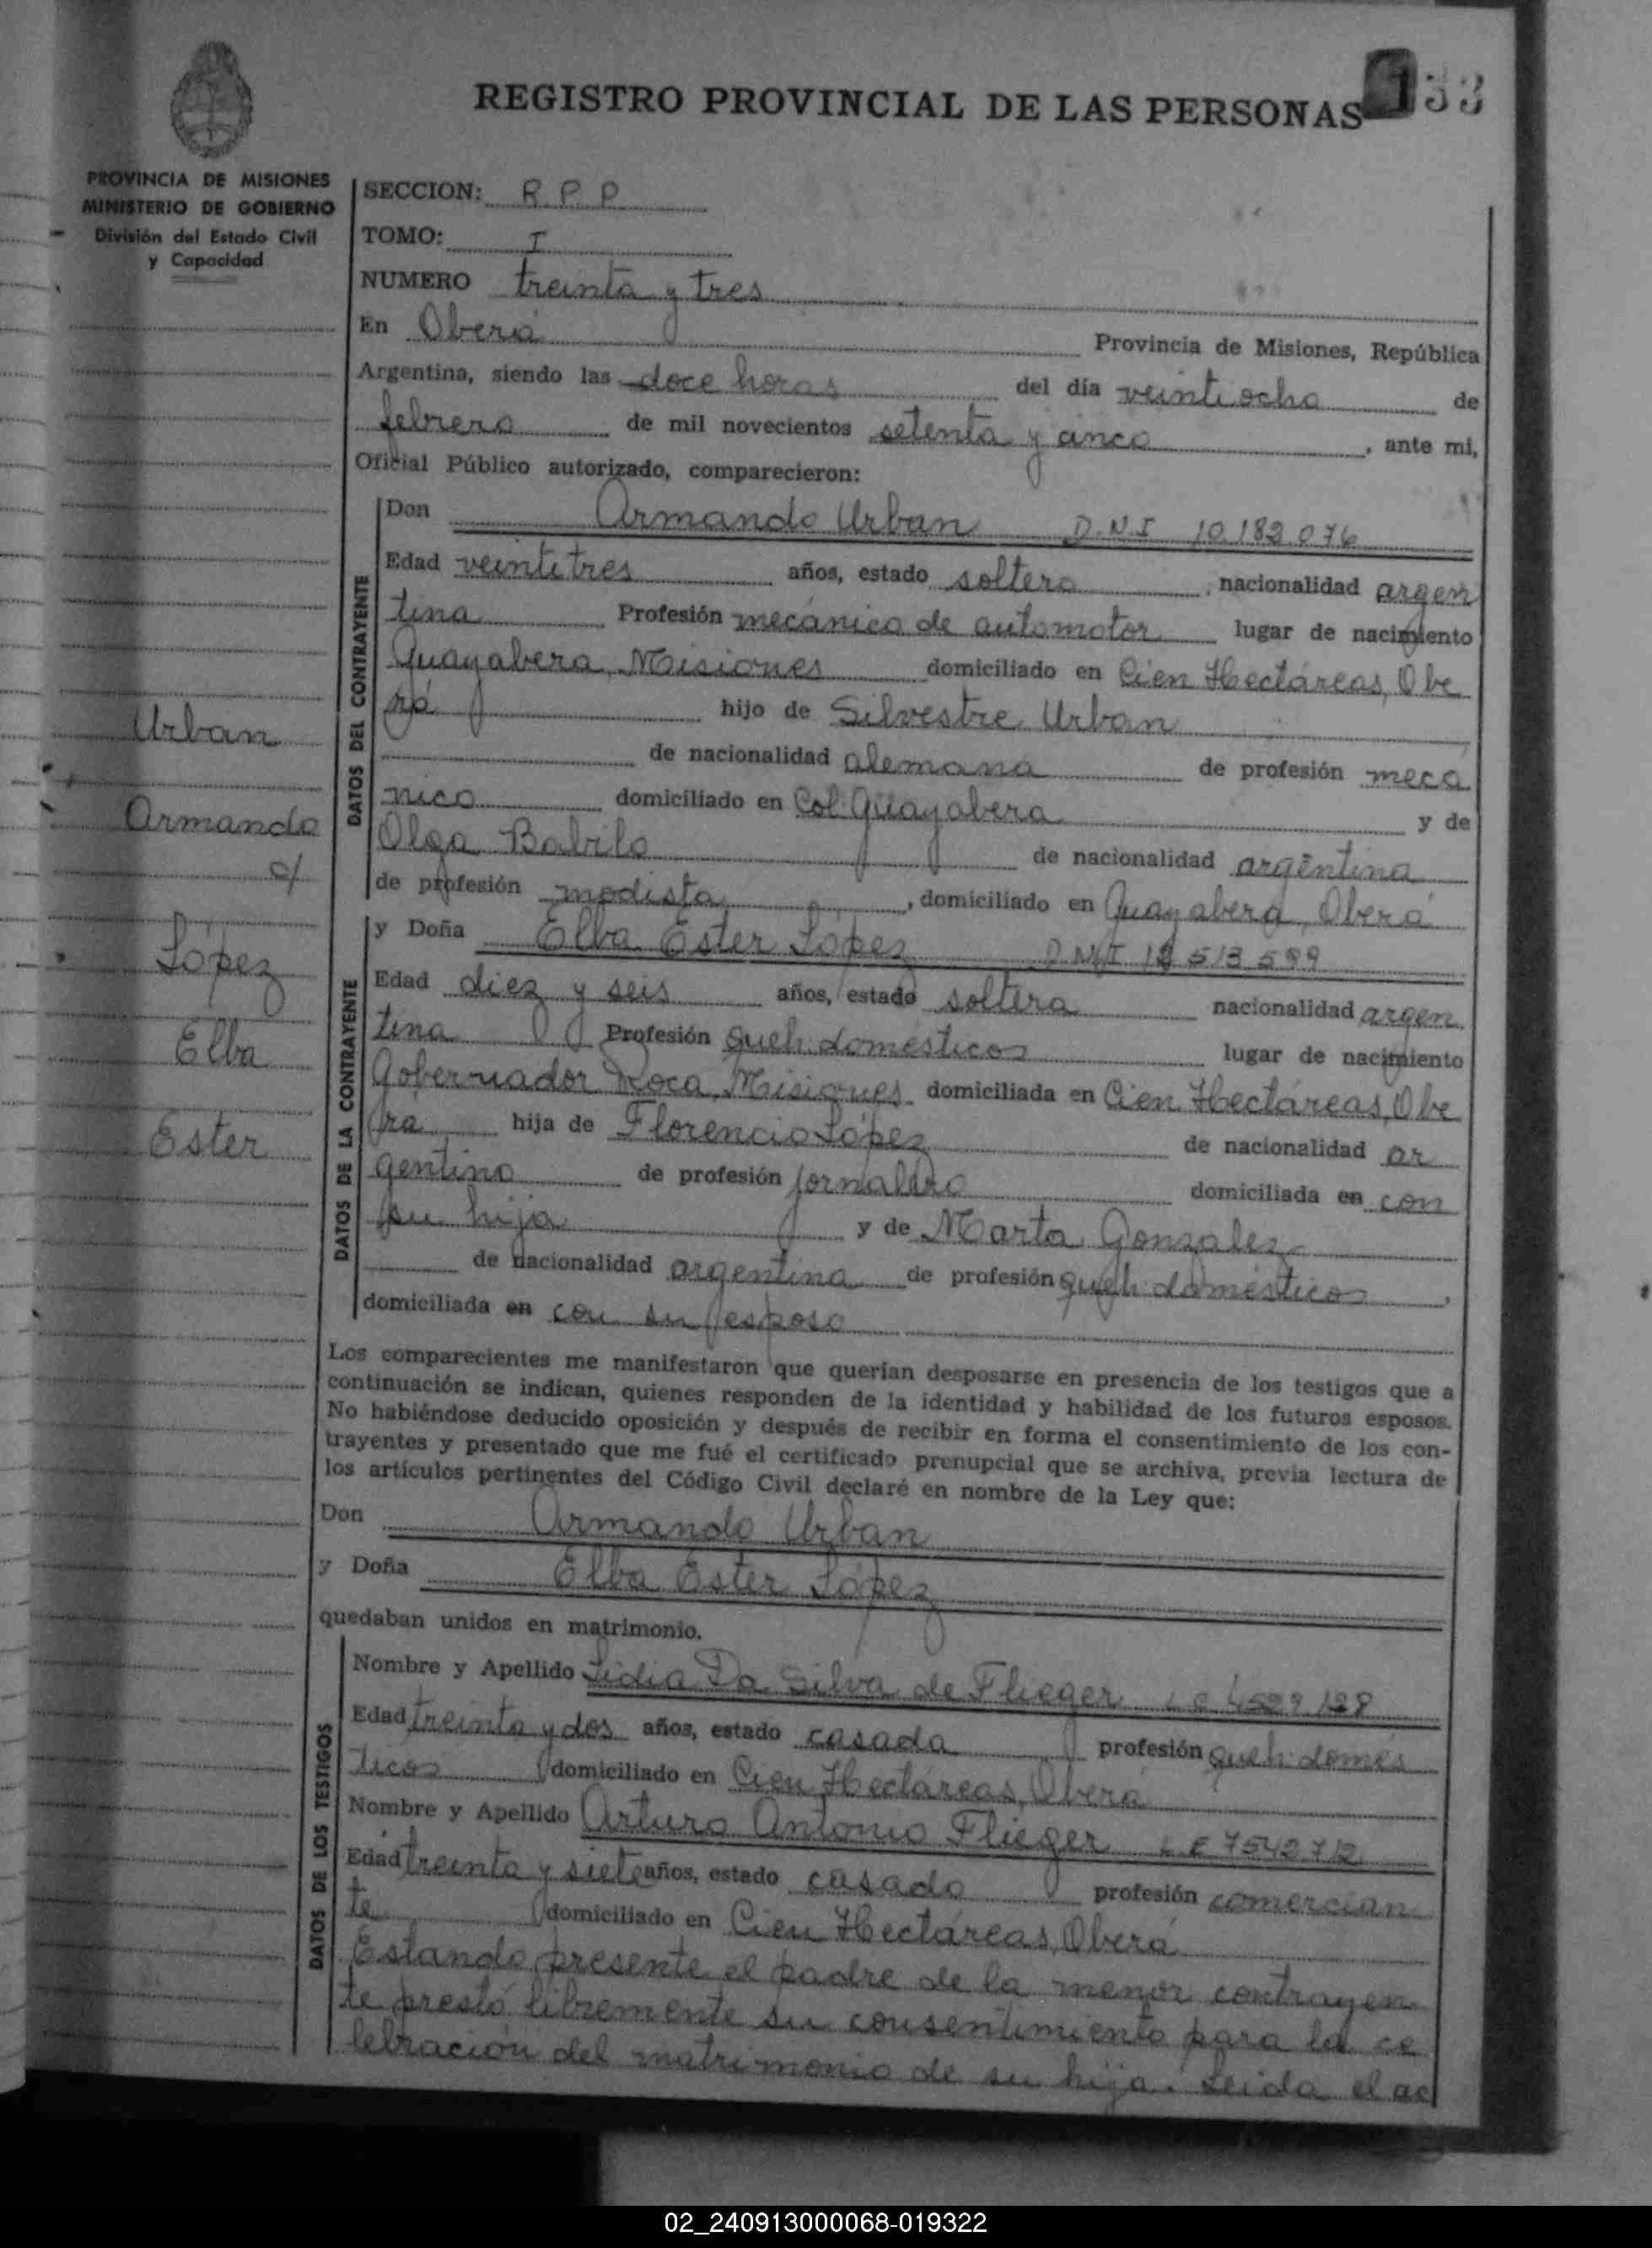 REGISTRO PROVINCIAL DE LAS PERSONAS
133
PROVINCIA DE MISIONES
MINISTERIO DE GOBIERNO
División del Estado Civil
y Capacidad
SECCION: R P P
TOMO: I
NUMERO treinta y tres
En Oberá Provincia de Misiones, República
Argentina, siendo las doce horas del día veintiocho de
febrero de mil novecientos setenta y cinco, ante mi,
Oficial Público autorizado, comparecieron:
DATOS DEL CONTRAYENTE
Don Armando Urban D.N.I 10.182.076
Edad veintitres años, estado soltero, nacionalidad argen
tina Profesión mecánico de automotor lugar de nacimiento
Guayabera, Misiones domiciliado en Cien Hectáreas, Obe
rá hijo de Silvestre Urban
de nacionalidad alemana de profesión mecá
nico domiciliado en Col. Guayabera y de
Olga Babilo de nacionalidad argentina
de profesión modista, domiciliado en Guayabera, Oberá
Urban
Armando
c/
López
Elba
Ester
DATOS DE LA CONTRAYENTE
y Doña Elba Ester López D.N.I 513 599
Edad diez y seis años, estado soltera nacionalidad argen
tina Profesión queh. domésticos lugar de nacimiento
Gobernador Roca, Misiones domiciliada en Cien Hectáreas, Obe
rá hija de Florencio López de nacionalidad ar
gentino de profesión jornalero domiciliada en con
su hija y de Marta Gonzalez
de nacionalidad argentina de profesión queh. domésticos,
domiciliada en con su esposo
Los comparecientes me manifestaron que querían desposarse en presencia de los testigos que a
continuación se indican, quienes responden de la identidad y habilidad de los futuros esposos.
No habiéndose deducido oposición y después de recibir en forma el consentimiento de los con-
trayentes y presentado que me fué el certificado prenupcial que se archiva, previa lectura de
los artículos pertinentes del Código Civil declaré en nombre de la Ley que:
Don Armando Urban
y Doña Elba Ester López
quedaban unidos en matrimonio.
DATOS DE LOS TESTIGOS
Nombre y Apellido Lidia Da Silva de Flieger L C 4529128
Edad treinta y dos años, estado casada profesión queh. domés
ticos domiciliado en Cien Hectáreas, Oberá
Nombre y Apellido Arturo Antonio Flieger L E 7542712
Edad treinta y siete años, estado casado profesión comercian
te domiciliado en Cien Hectáreas, Oberá
Estando presente el padre de la menor contrayen
te prestó libremente su consentimiento para la ce
lebración del matrimonio de su hija. Leída el ac
02_240913000068-019322